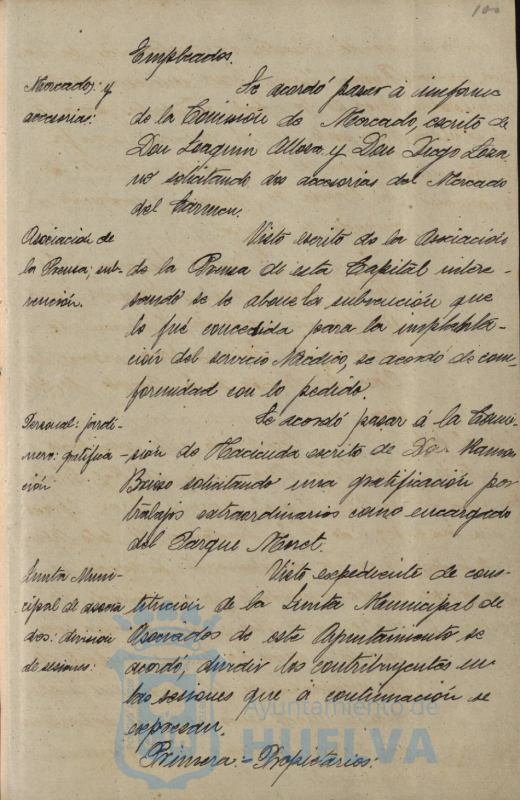 100
Empleados.
Mercados: y
accesorias:
Se acordó pasar á informe
de la Comisión de Mercado, escrito de
Don Joaquin y Don Diego Loza
no solicitando dos accesorias del Mercado
del Carmen.
Asociacion de
la Prensa; sub-
vención.
Visto escrito de la Asociación
de la Prensa de esta Capital intere-
sando se le abone la subvención que
le fué concedida para la implanta-
ción del servicio Médico, se acordó de con-
formidad con lo pedido.
Personal: jardi-
nero: gratifica-
ción
Se acordó pasar á la Comi-
sión de Hacienda escrito de Don Ramon
solicitando una gratificación por
trabajos extraordinarios como encargado
del Parque Moret.
Junta Muni-
cipal de asocia
dos: división
de sesiones:
Visto expediente de cons-
titucion de la Junta Municipal de
Asociados de este Ayuntamiento se
acordó, dividir los contribuyentes en
las sesiones que á continuación se
expresan.
Primera.- Propietarios.
Ayuntamiento de
HUELVA